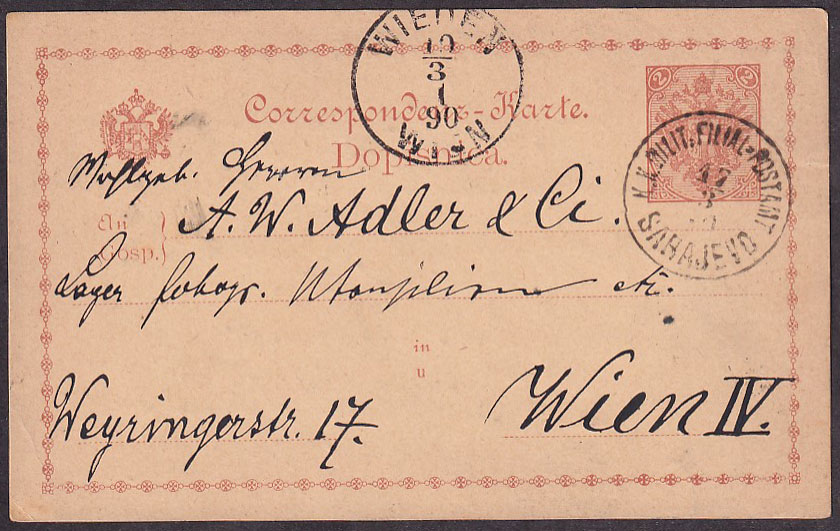 WIEDEN
10
3
1
90
WIEN
2 2
Correspondenz-Karte.
Dopisnica.
K. K. MILIT. FILIAL-POSTAMT
17
3
SARAJEVO
Wohlgeb. Herrren
An
Gosp.}
A. W. Adler & Ci.
Lager fotogr. Utensilien etc.
in
u
Wien IV.
Weyringerstr. 17.